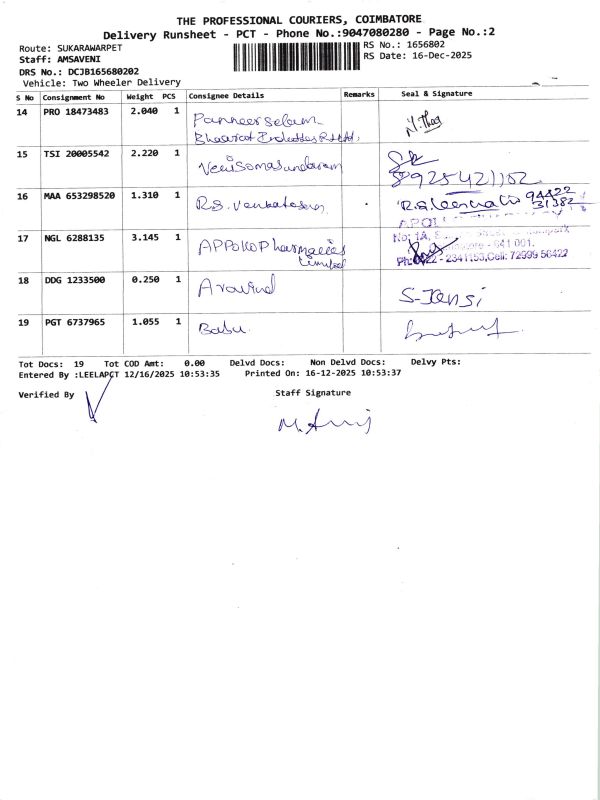 THE PROFESSIONAL COURIERS, COIMBATORE
Delivery Runsheet - PCT - Phone No.:9047080280 - Page No.:2
Route: SUKARAWARPET
RS No.: 1656802
Staff: AMSAVENI
RS Date: 16-Dec-2025
DRS No.: DCJB165680202
Vehicle: Two Wheeler Delivery
S No Consignment No Weight PCS Consignee Details Remarks Seal & Signature
14 PRO 18473483 2.040 1 Panneerselam
Bharat
15 TSI 20005542 2.220 1 Venisomasundaram
8925421102
16 MAA 653298520 1.310 1 R.S. Venkatesan
94422
31382
17 NGL 6288135 3.145 1 APPOKO Pharmacies
Limited
No: 1A,
641 001.
Ph: 0422 - 2341153, Cell: 72999 56422
18 DDG 1233500 0.250 1 Aravind S-Jensi
19 PGT 6737965 1.055 1 Babu
Tot Docs: 19 Tot COD Amt: 0.00 Delvd Docs: Non Delvd Docs: Delvy Pts:
Entered By :LEELAPCT 12/16/2025 10:53:35 Printed On: 16-12-2025 10:53:37
Verified By Staff Signature